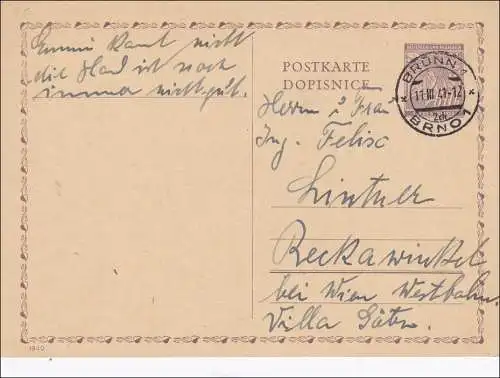 Emmi kann nicht
die Hand ist noch
immer nicht gut.
POSTKARTE
DOPISNICE
BRÜNN 1
11.III.41-12
BRNO 1
Herrn u Frau
Ing. Felix
Lintner
Reckawinkel
bei Wien Westbahn.
Villa
1940